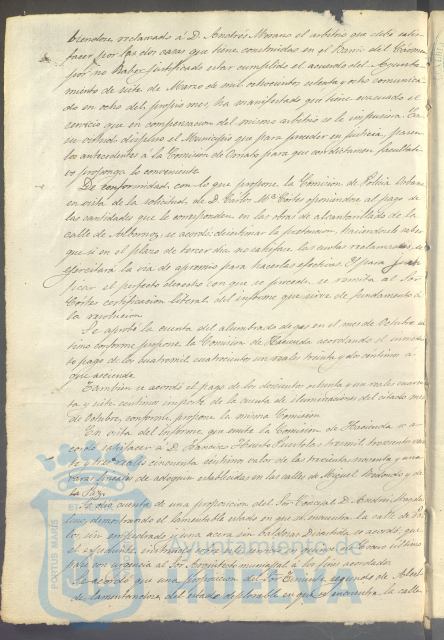 reclamado á D. Andrés Morano el arbitrio que debe satis-
facer por las dos casas que tiene construidas en el Barrio del
por no haber justificado estar cumplido el acuerdo del Ayunta-
miento de siete de Marzo de mil ochocientos setenta y ocho comunica-
do en ocho del propio mes, ha manifestado que tiene evacuado el
servicio que en compensacion del mismo arbitrio se le impusiera. En
su virtud dispuso el Municipio que para proceder en justicia, pasen
los antecedentes á la Comision de Ornato para que con dictamen facultati-
vo proponga lo conveniente.
De conformidad con lo que propone la Comision de Policia Urbana
en vista de la solicitud de D. Carlos Mª Cortés oponiendose al pago de
las cantidades que le corresponden en las obras de alcantarillado de la
calle de Albornoz, se acordó: desestimar la pretension, haciendole saber
que si en el plazo de tercer dia no satisface las cuotas reclamadas, se
ejercitará la via de apremio para hacerlas efectivas. Y para justi-
ficar el perfecto derecho con que se procede, se remita al Sor
Cortés certificacion literal del informe que sirve de fundamento á
la resolucion.
Se aprobó la cuenta del alumbrado de gas en el mes de Octubre
conforme propone la Comision de Hacienda acordando el
pago de los cuatro mil cuatrocientos un reales treinta y dos centimos á
que asciende.
Tambien se acordó el pago de los doscientos ochenta y un reales cuaren-
ta y siete centimos importe de la cuenta de iluminaciones del citado mes
de Octubre, conforme propone la misma Comision.
En vista del Informe que emite la Comision de Hacienda se a-
cordó satisfacer á D. Francisco tres mil trescientos vein-
te y reales cincuenta centimos valor de las trescientas noventa y una
varas lineales de adoquin establecidas en las calles de Miguel Redondo y de
la Paz.
Se dio cuenta de una proposicion del Sor Concejal D. Andrés
demostrando el lamentable estado en que se encuentra la calle de
sin empedrado y una acera sin baldosas. Discutida se acordó: que
el espediente instruido
pase con urgencia al Sor Arquitecto municipal á los fines acordados.
Se acordó que una proposicion del Sor Teniente segundo de Alcal-
de lamentandose del estado deplorable en que se encuentra la calle
PORTUS MARIS
Ayuntamiento de
HUELVA